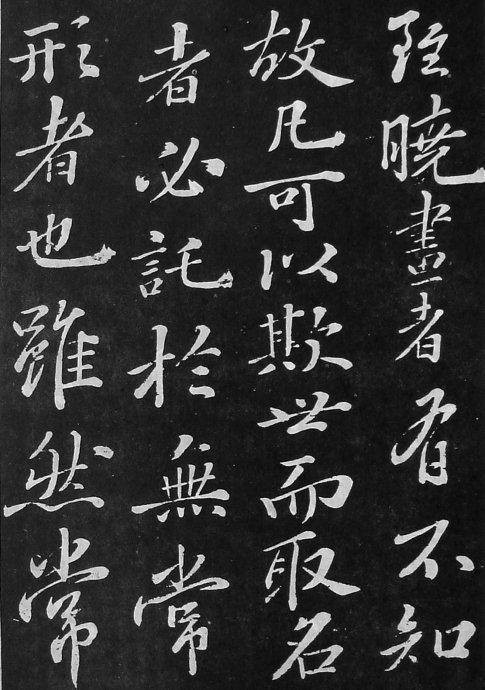 雖曉畫者有不知
故凡可以欺世而取名
者必託於無常
形者也雖然常